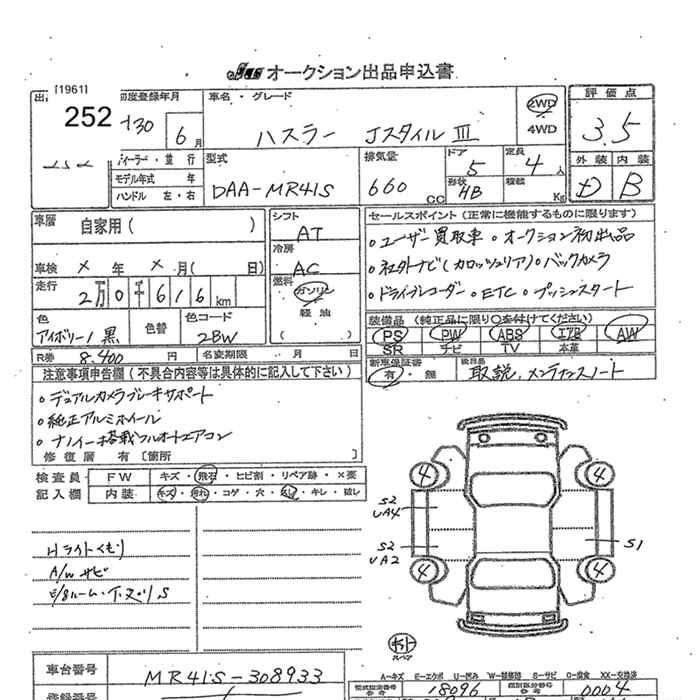 JUS オークション出品申込書
[1961]
252
初度登録年月
H30 6月
車名・グレード
ハスラー JスタイルⅢ
2WD
4WD
評価点
3.5
ディーラー・並行
モデル年式 年
ハンドル 左・右
型式
DAA-MR41S
排気量
660 CC
ドア 5
形状 HB
定員 4人
積載 Kg
外装 内装
D B
車歴 自家用( )
車検 × 年 × 月( 日)
走行 2万0千616km
色 アイボリー/黒
色替
色コード
2BW
R券 8.400 円 名変期限 月 日
シフト
AT
冷房
AC
燃料
ガソリン
軽油
( )
セールスポイント(正常に機能するものに限ります)
。ユーザー買取車 。オークション初出品
。社外ナビ(カロッツェリア)。バックカメラ
。ドライブレコーダー 。ETC 。プッシュスタート
装備品(純正品に限り○を付けてください)
PS PW ABS エアB AW
SR ナビ TV 本革
新車保証書
有・無
後日品
取説、メンテナンスノート
注意事項申告欄(不具合内容等は具体的に記入して下さい)
。デュアルカメラブレーキサポート
。純正アルミホイール
。ナノイー搭載フルオートエアコン
修復歴 有〔箇所 〕
検査員 FW キズ・飛石・ヒビ割・リペア跡・×要
記入欄 内装 キズ・汚れ・コゲ・穴・・キレ・破レ
Hライトくもり
A/Wサビ
S
4 4
S2
UA4
S2
UA2
S1
4 4
スペア
車台番号 MR41S-308933
A-キズ E-エクボ U-凹み W-補修跡 S-サビ C-腐食 XX-交換済
型式指定番号 18096 類別区分番号 0004
参考 参考